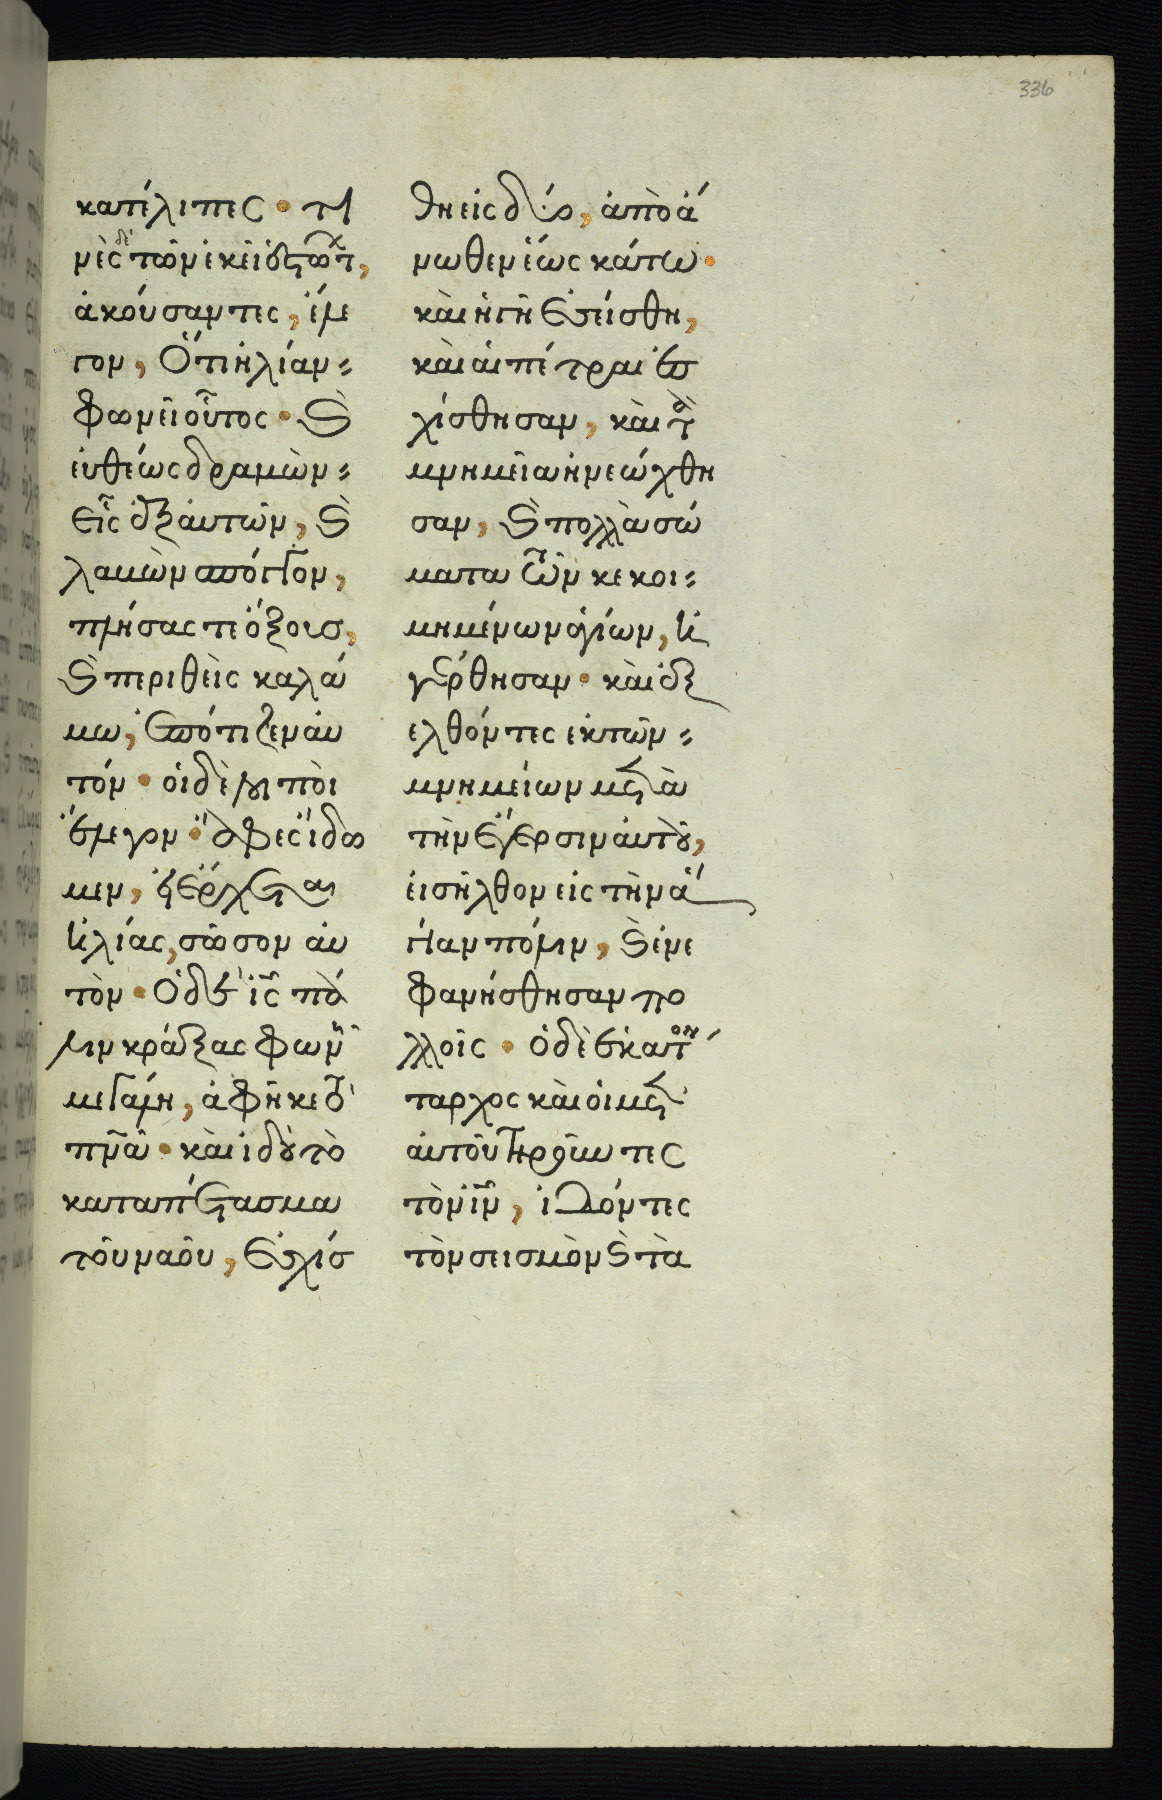 336
κατέλιπες · τι
νὲς δὲ τῶν ἐκεῖ ἑστώτ,
ἀκούσαντες, ἔλε
γον, Ὅτι ἠλίαν
φωνεῖ οὗτος · καὶ
εὐθέως δραμὼν
εἷς ἐξ αὐτῶν, καὶ
λαβὼν σπόγγον,
πλήσας τε ὄξους,
καὶ περιθεὶς καλά
μω, ἐπότιζεν αὐ
τόν · οἱ δὲ λοιποὶ
ἔλεγον · ἄφες ἴδω
μεν, εἰ ἔρχεται
ἠλίας, σῶσον αὐ
τὸν · Ὁ δὲ ἰς πά
λιν κράξας φων
μεγάλη, ἀφῆκε τὸ
πνᾶ · καὶ ἰδοὺ τὸ
καταπέτασμα
τοῦ ναοῦ, ἐσχίσ
θη εἰς δύο, ἀπὸ ἄ
νωθεν ἕως κάτω ·
καὶ ἡ γῆ ἐσείσθη,
καὶ αἱ πέτραι ἐσ
χίσθησαν, καὶ τὰ
μνημεῖα ἠνεώχθη
σαν, καὶ πολλὰ σώ
ματα τῶν κεκοι
μημένων ἁγίων, ἠ
γέρθησαν · καὶ ἐξ
ελθόντες ἐκ τῶν
μνημείων μετὰ
τὴν ἔγερσιν αὐτοῦ,
εἰσῆλθον εἰς τὴν ἁ
γίαν πόλιν, καὶ ἐνε
φανήσθησαν πο
λλοῖς · ὁ δὲ ἑκατόν
ταρχος καὶ οἱ μετ
αὐτοῦ τηροῦντες
τὸν ἰν, ἰδόντες
τὸν σεισμὸν καὶ τὰ